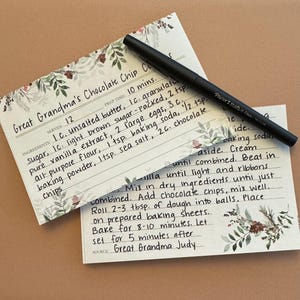 Great Grandma's Chocolate Chip
SERVES 12 10 mins.
INGREDIENTS 1 c. unsalted butter, 1 c. granulated
sugar, 1 c. light brown sugar-packed, 2 tsp
pure vanilla extract, 2 large eggs, 3 c.
all-purpose flour, 1 tsp baking soda, 1/2 tsp
baking powder, 1 tsp. sea salt, 2 c. chocolate
aside. Cream
until combined. Beat in
vanilla until light and ribbons
Mix in dry ingredients until just
combined. Add chocolate chips, mix well.
Roll 2-3 tbsp. of dough into balls. Place
on prepared baking sheets.
Bake for 8-10 minutes. let
set for 5 minutes after
SOURCE Great Grandma Judy